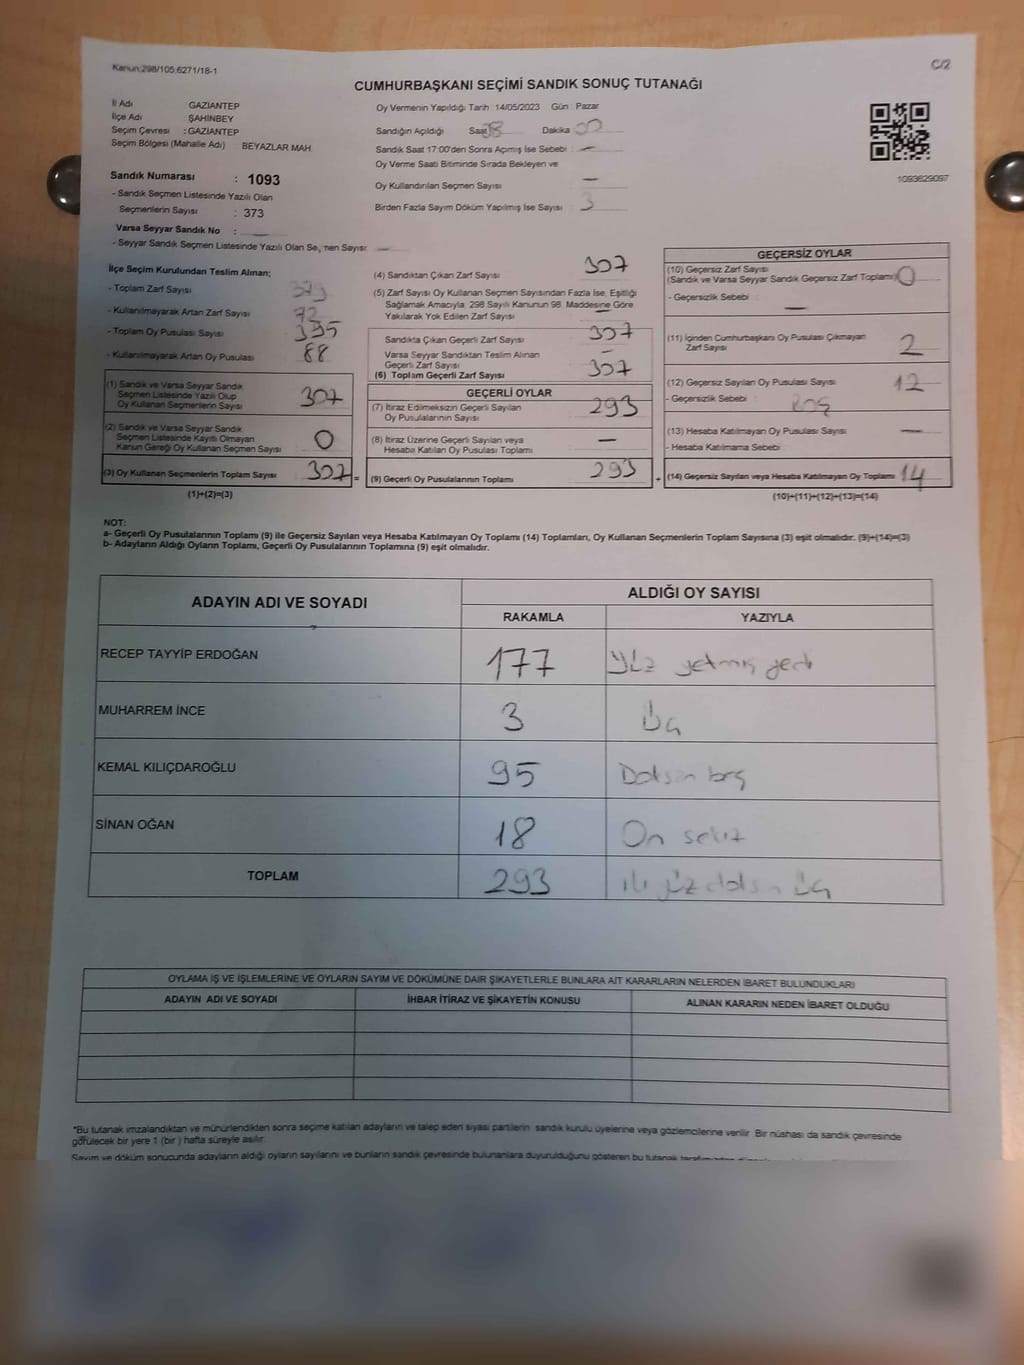 Kanun:298/105;6271/18-1
C/2
CUMHURBAŞKANI SEÇİMİ SANDIK SONUÇ TUTANAĞI
İl Adı GAZİANTEP
İlçe Adı ŞAHİNBEY
Seçim Çevresi : GAZİANTEP
Seçim Bölgesi (Mahalle Adı) BEYAZLAR MAH.
Sandık Numarası : 1093
- Sandık Seçmen Listesinde Yazılı Olan
Seçmenlerin Sayısı : 373
Varsa Seyyar Sandık No :
- Seyyar Sandık Seçmen Listesinde Yazılı Olan Seçmen Sayısı
Oy Vermenin Yapıldığı Tarih 14/05/2023 Gün : Pazar
Sandığın Açıldığı Saat Dakika
Sandık Saat 17:00'den Sonra Açımış İse Sebebi : —
Oy Verme Saati Bitiminde Sırada Bekleyen ve
Oy Kullandırılan Seçmen Sayısı —
Birden Fazla Sayım Döküm Yapılmış İse Sayısı 3
1093629097
İlçe Seçim Kurulundan Teslim Alınan;
- Toplam Zarf Sayısı
- Kullanılmayarak Artan Zarf Sayısı 72
- Toplam Oy Pusulası Sayısı 395
- Kullanılmayarak Artan Oy Pusulası 88
(1) Sandık ve Varsa Seyyar Sandık
Seçmen Listesinde Yazılı Olup
Oy Kullanan Seçmenlerin Sayısı 307
(2) Sandık ve Varsa Seyyar Sandık
Seçmen Listesinde Kayıtlı Olmayan
Kanun Gereği Oy Kullanan Seçmen Sayısı 0
(3) Oy Kullanan Seçmenlerin Toplam Sayısı 307
(1)+(2)=(3)
(4) Sandıktan Çıkan Zarf Sayısı 307
(5) Zarf Sayısı Oy Kullanan Seçmen Sayısından Fazla İse, Eşitliği
Sağlamak Amacıyla, 298 Sayılı Kanunun 98. Maddesine Göre
Yakılarak Yok Edilen Zarf Sayısı —
Sandıkta Çıkan Geçerli Zarf Sayısı 307
Varsa Seyyar Sandıktan Teslim Alınan
Geçerli Zarf Sayısı —
(6) Toplam Geçerli Zarf Sayısı 307
GEÇERLİ OYLAR
(7) İtiraz Edilmeksizin Geçerli Sayılan
Oy Pusulalarının Sayısı 293
(8) İtiraz Üzerine Geçerli Sayılan veya
Hesaba Katılan Oy Pusulası Toplamı —
(9) Geçerli Oy Pusulalarının Toplamı 293
GEÇERSİZ OYLAR
(10) Geçersiz Zarf Sayısı
(Sandık ve Varsa Seyyar Sandık Geçersiz Zarf Toplamı) 0
- Geçersizlik Sebebi : —
(11) İçinden Cumhurbaşkanı Oy Pusulası Çıkmayan
Zarf Sayısı 2
(12) Geçersiz Sayılan Oy Pusulası Sayısı 12
- Geçersizlik Sebebi : BOŞ
(13) Hesaba Katılmayan Oy Pusulası Sayısı —
- Hesaba Katılmama Sebebi
(14) Geçersiz Sayılan veya Hesaba Katılmayan Oy Toplamı 14
(10)+(11)+(12)+(13)=(14)
NOT:
a- Geçerli Oy Pusulalarının Toplamı (9) ile Geçersiz Sayılan veya Hesaba Katılmayan Oy Toplamı (14) Toplamları, Oy Kullanan Seçmenlerin Toplam Sayısına (3) eşit olmalıdır. (9)+(14)=(3)
b- Adayların Aldığı Oyların Toplamı, Geçerli Oy Pusulalarının Toplamına (9) eşit olmalıdır.
ADAYIN ADI VE SOYADI ALDIĞI OY SAYISI
RAKAMLA YAZIYLA
RECEP TAYYİP ERDOĞAN 177 Yüz yetmiş yedi
MUHARREM İNCE 3 Üç
KEMAL KILIÇDAROĞLU 95 Doksan beş
SİNAN OĞAN 18 On sekiz
TOPLAM 293 iki yüz doksan üç
OYLAMA İŞ VE İŞLEMLERİNE VE OYLARIN SAYIM VE DÖKÜMÜNE DAİR ŞİKAYETLERLE BUNLARA AİT KARARLARIN NELERDEN İBARET BULUNDUKLARI
ADAYIN ADI VE SOYADI İHBAR İTİRAZ VE ŞİKAYETİN KONUSU ALINAN KARARIN NEDEN İBARET OLDUĞU
*Bu tutanak imzalandıktan ve mühürlendikten sonra seçime katılan adayların ve talep eden siyasi partilerin sandık kurulu üyelerine veya gözlemcilerine verilir. Bir nüshası da sandık çevresinde
görülecek bir yere 1 (bir) hafta süreyle asılır.
Sayım ve döküm sonucunda adayların aldığı oyların sayılarını ve bunların sandık çevresinde bulunanlara duyurulduğunu gösteren bu tutanak